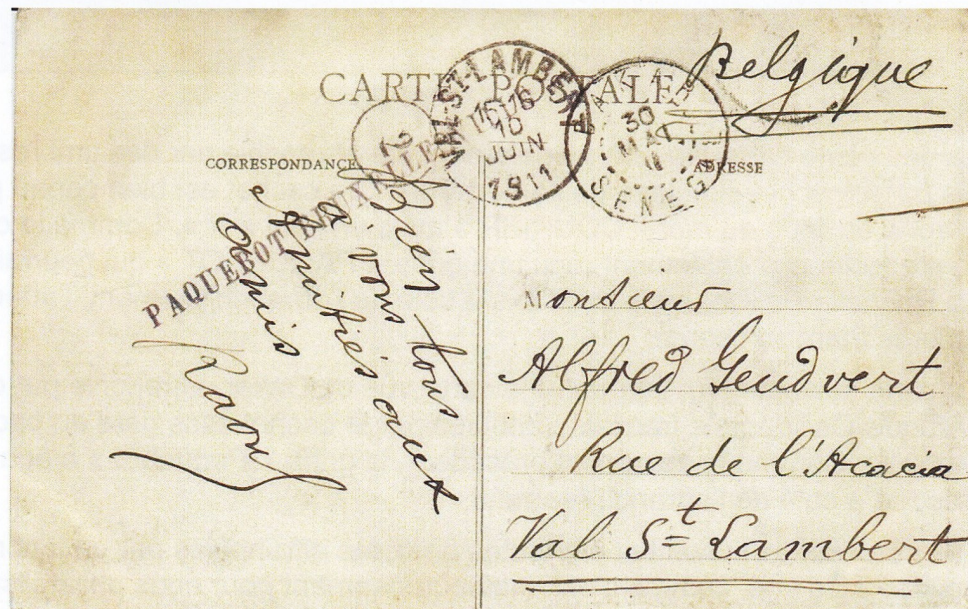 CARTE POSTALE
Belgique
CORRESPONDANCE
ADRESSE
VAL-ST-LAMBERT
15-16
10
JUIN
1911
30
MAI
11
SENEG
2
PAQUEBOT BRUXELLE
Bien tous
à vous
Amitiés aux
amis
Raoul
Monsieur
Alfred Gendvert
Rue de l'Acacia
Val St Lambert